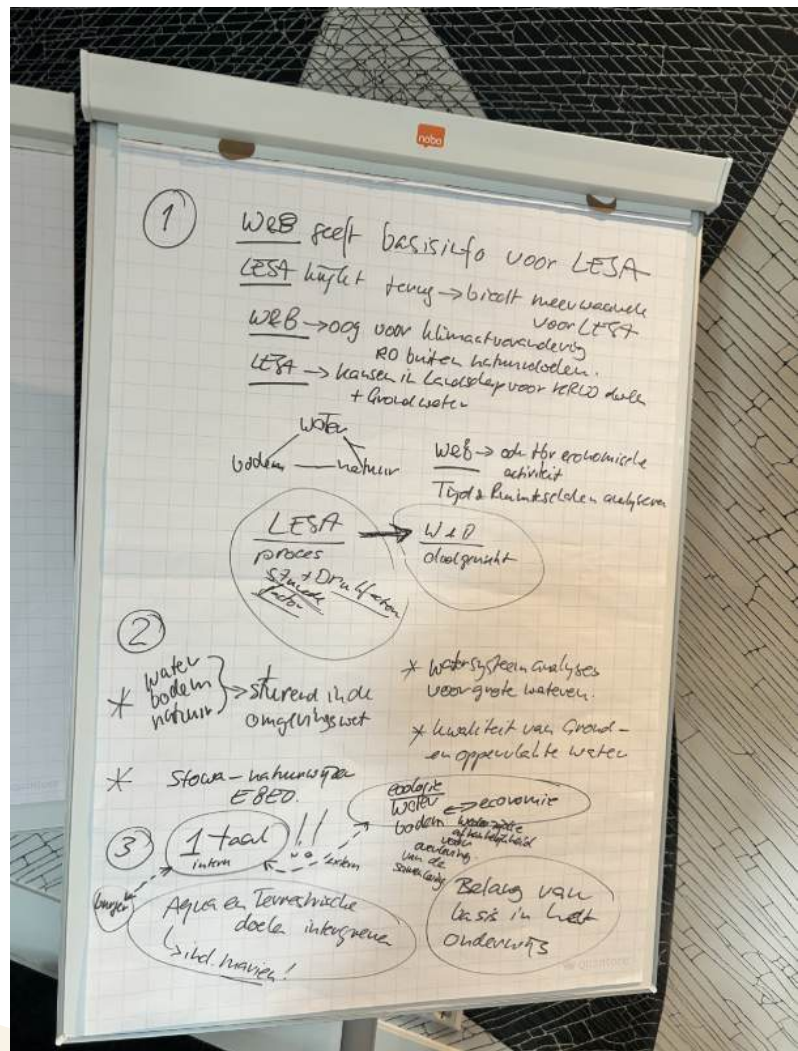 nobo
1
W&B geeft basisinfo voor LESA
LESA kijkt terug → biedt meerwaarde
voor LESA
W&B → oog voor klimaatverandering
RO buiten natuurdoelen.
LESA → kansen in Landschap voor KRW doelen
+ Grondwater
water
bodem — natuur
W&B → economische
activiteit
Tijd & Ruimteschalen analyseren
LESA → W&B
proces doelgericht
Sturende + Drukfactoren
factor
2
* water
bodem
natuur
→ sturend in de
omgevingswet
* watersysteem analyses
voor grote wateren.
* kwaliteit van Grond-
en oppervlakte water
* Stowa - natuurwijzer
EBEO.
ecologie
water ↔ economie
bodem
van de
3
1 taal !!
intern
extern
burger
Aqua en Terrestrische
doelen integreren
↳ incl. marien!
Belang van
basis in het
onderwijs